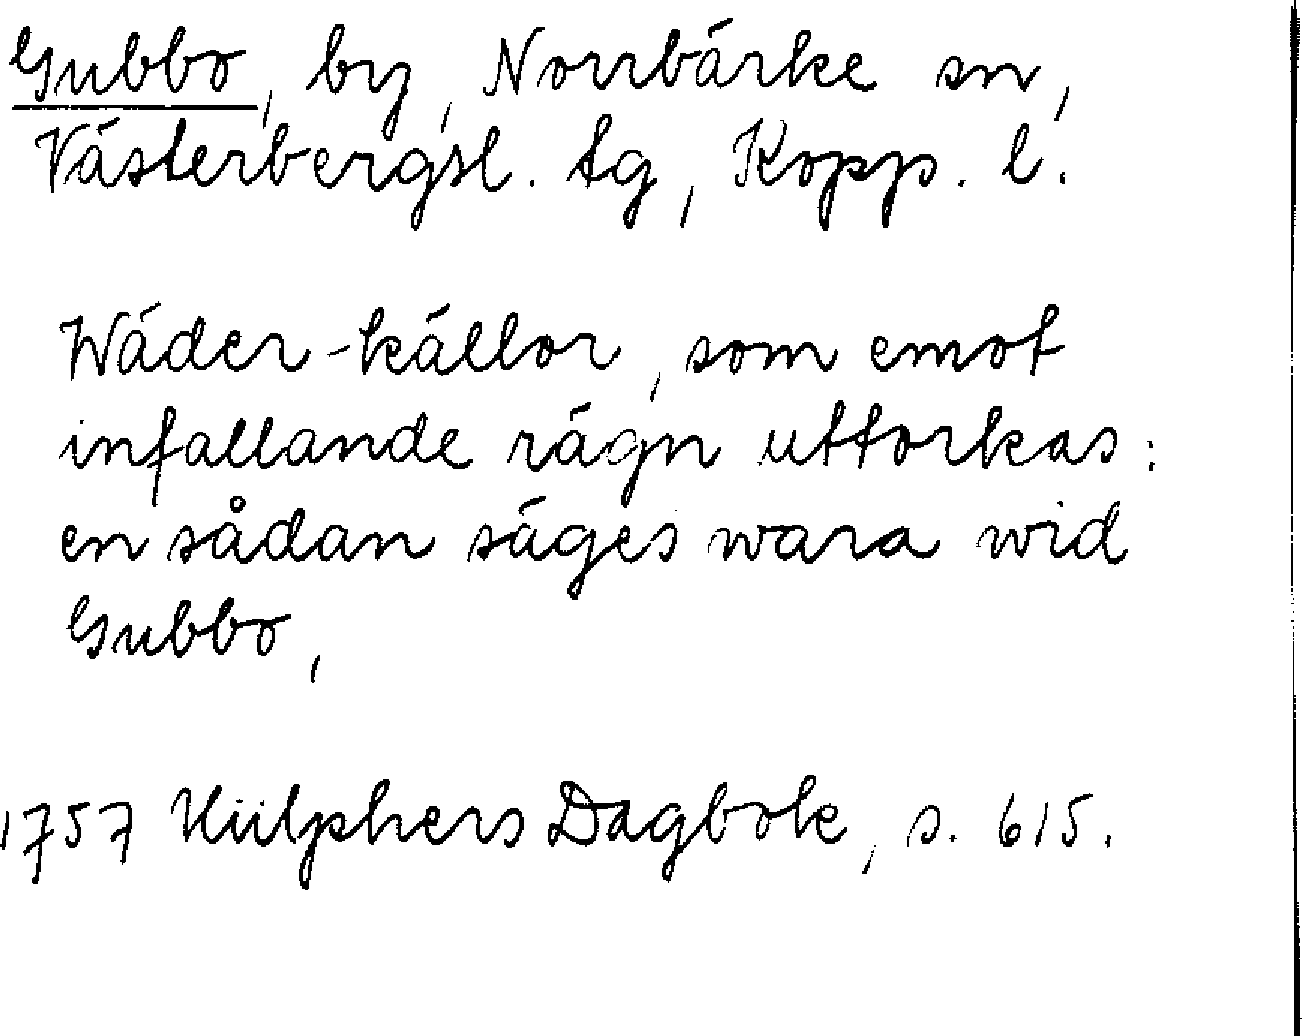 Gubbo, by, Norrbärke sn,
Västerbergsl. tg, Kopp. l.
Wäder-källor, som emot
infallande rägn uttorkas:
en sådan säges wara wid
Gubbo,
1757 Hülphers Dagbok, s. 615.